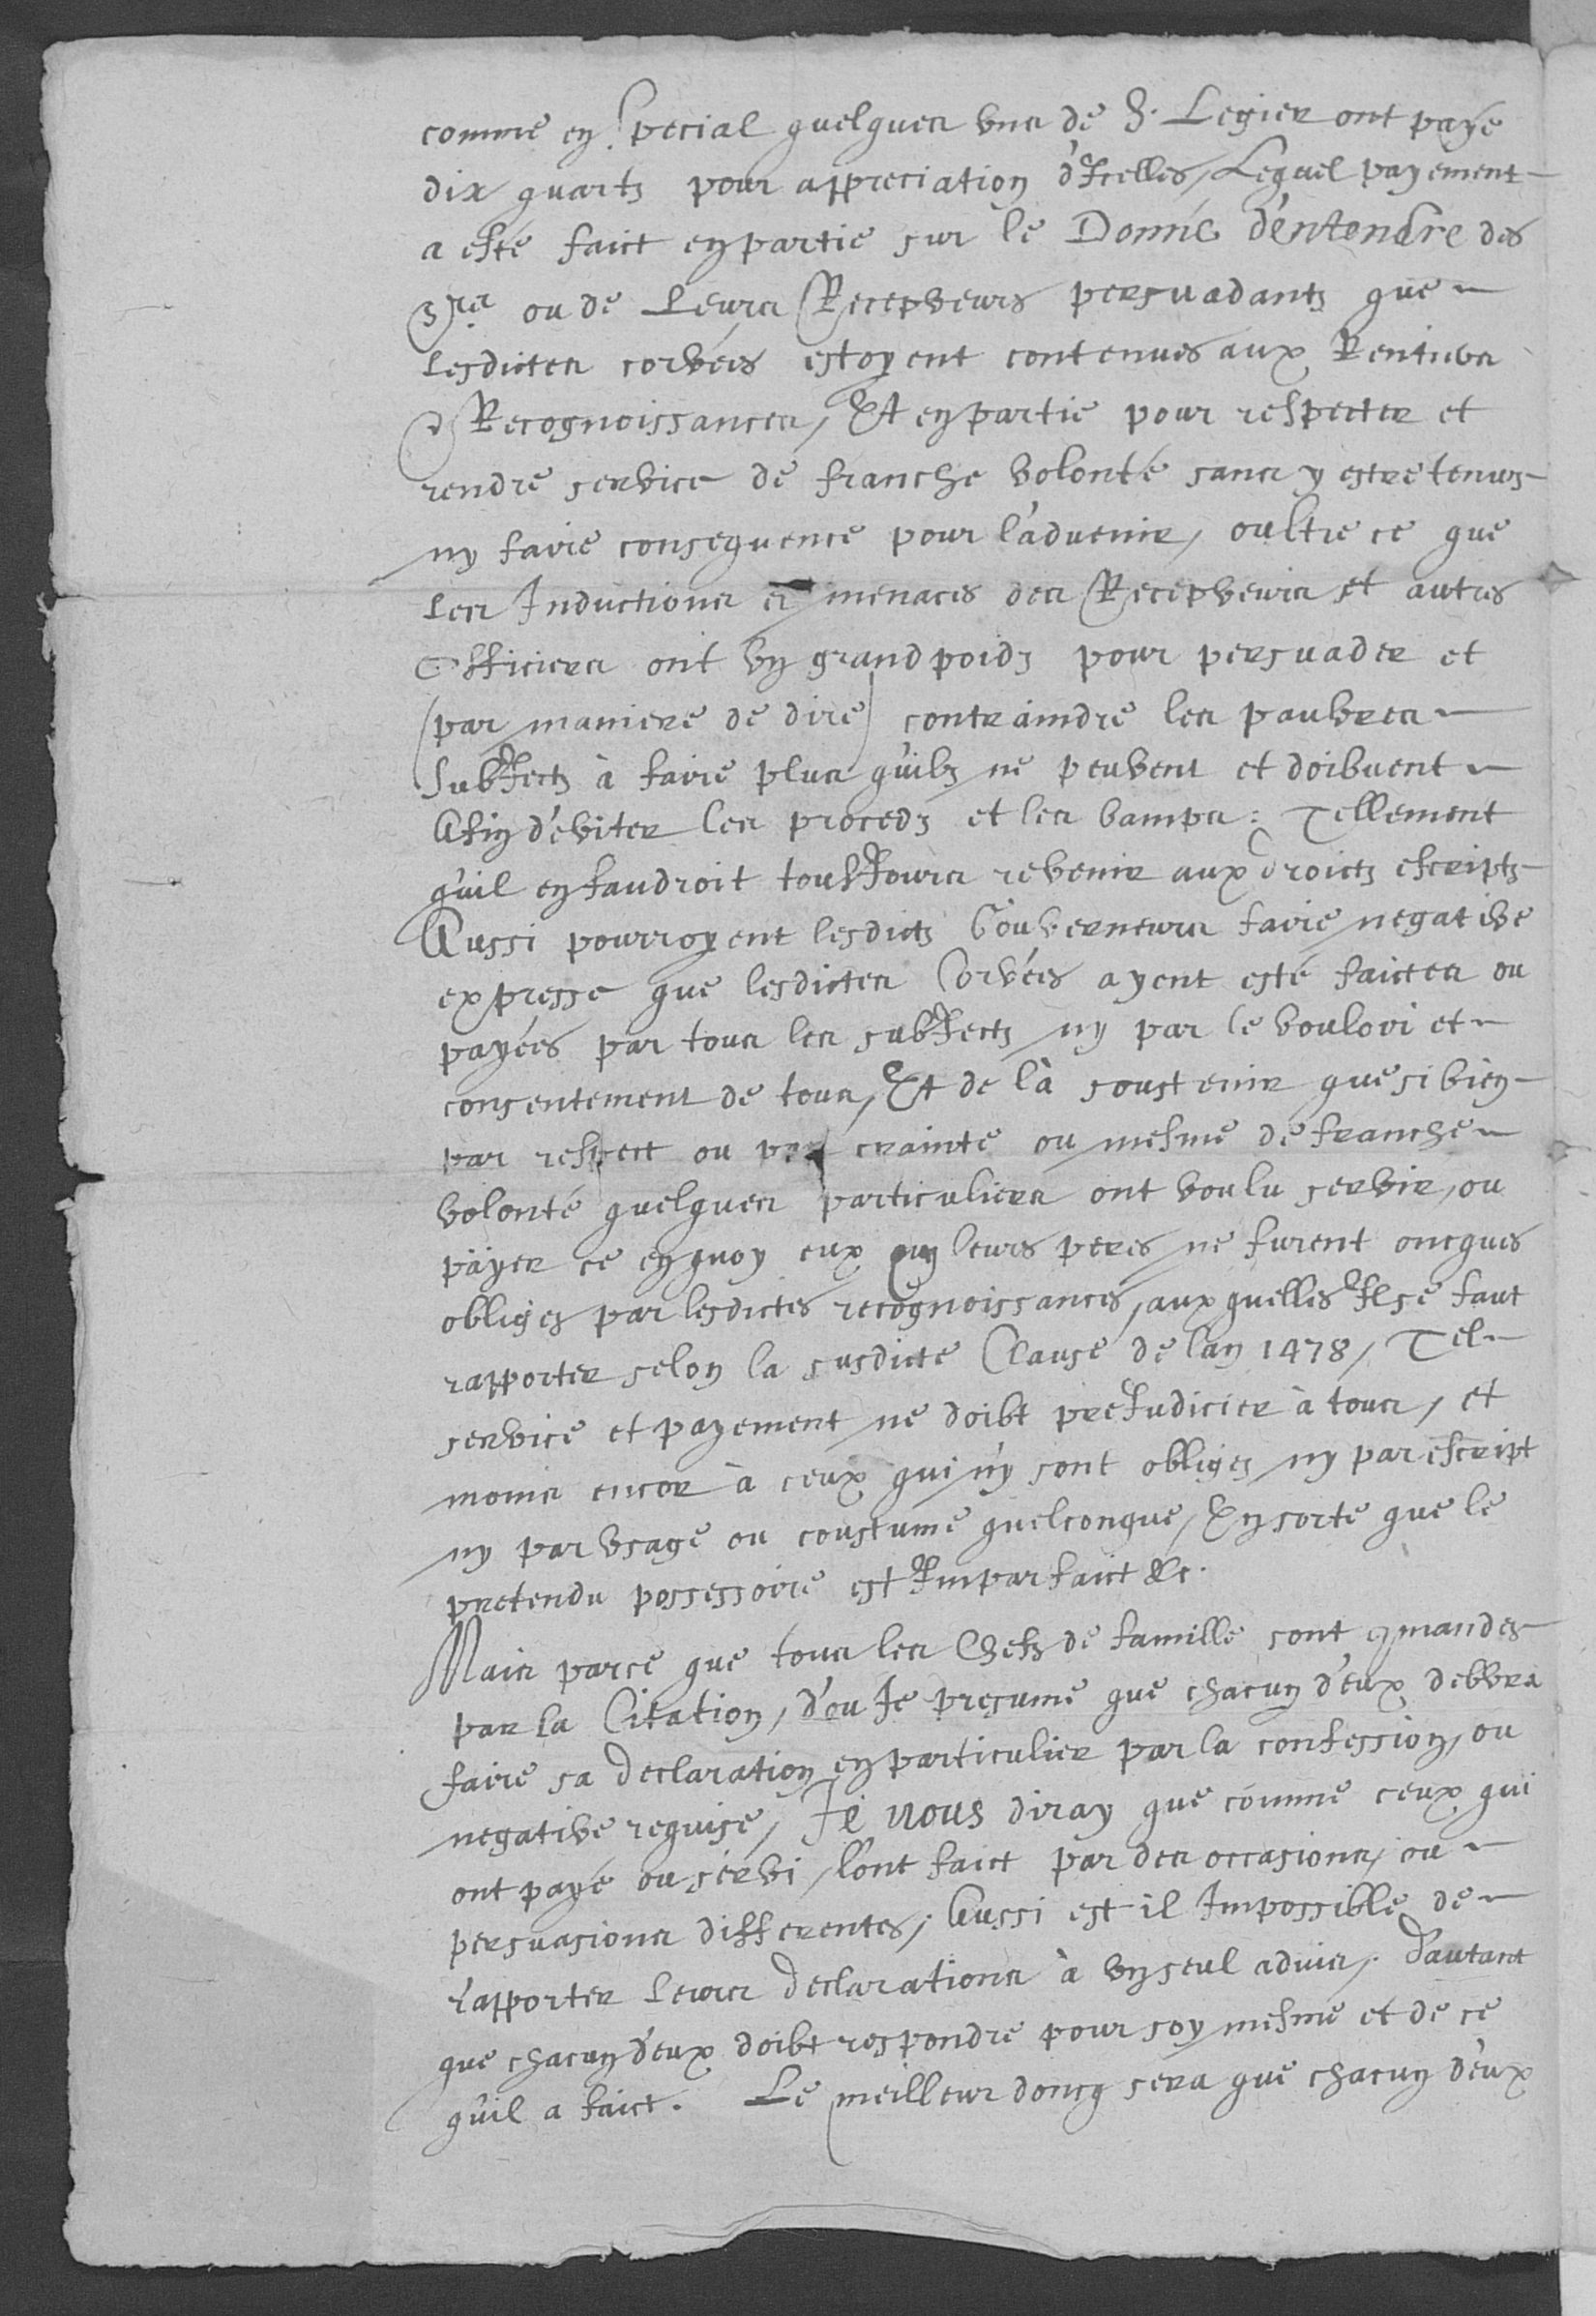 comme en special quelques uns de S. Legier ont payé
dix quarts pour appreciation d'Icelles, Lequel payement
a esté faict en partie sur le Donné d'entendre des
Srs ou de Leurs Recepveurs persuadants que
lesdictes corvées estoyent contenues aux Rentiers
& Recognoissances, Et en partie pour respecter et
rendre service de franche volonté sans y estre tenus
ny faire consequence pour l'advenir, oultre ce que
les Inductions et menaces des Recepveurs et autres
Officiers ont un grand poids pour persuader et
(par maniere de dire) contraindre les pauvres
subJects à faire plus qu'ils ne peuvent et doibvent
Afin d'eviter les proceds et les bamps: Tellement
qu'il en faudroit tousJours revenir aux droicts escripts
Aussi pourroyent lesdicts Gouverneurs faire negative
expresse que lesdictes Corvées ayent esté faictes ou
payées par tous les subJects ny par le vouloir et
consentement de tous, Et de là soustenir que si bien
par respect ou par crainte ou mesme de franche
volonté quelques particuliers ont voulu servir, ou
payer ce en quoy eux ny leurs peres ne furent oncques
obliges par lesdictes recognoissances, aux quelles Il se faut
rapporter selon la susdicte Clause de l'an 1478, Tel
service et payement ne doibt preJudicier à tous, et
moins encor à ceux qui n'y sont obliges ny par escript
ny par usage ou coustume quelconque, En sorte que le
pretendu possessoire est Imparfaict &c.
Mais parce que tous les Chefs de famille sont commandes
par la Citation, d'ou Je presume que chacun d'eux debvra
faire sa declaration en particulier par la confession, ou
negative requise, Je vous diray que comme ceux qui
ont payé ou servi, l'ont faict par des occasions, ou
persuasions differentes; Aussi est il Impossible de
rapporter leurs declarations à un seul advis, d'autant
que chacun d'eux doibt respondre pour soy mesme et de ce
qu'il a faict. Le meilleur doncq sera que chacun d'eux